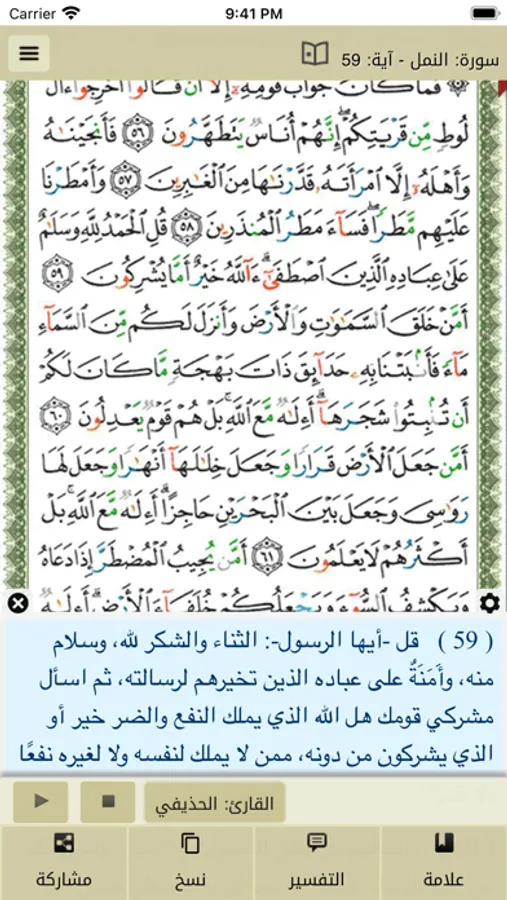 Carrier 9:41 PM
سورة: النمل - آية: 59
۞ فَمَا كَانَ جَوَابَ قَوْمِهِۦٓ إِلَّآ أَن قَالُوٓا۟ أَخْرِجُوٓا۟ ءَالَ
لُوطٍ مِّن قَرْيَتِكُمْ ۖ إِنَّهُمْ أُنَاسٌ يَتَطَهَّرُونَ ٥٦ فَأَنجَيْنَٰهُ
وَأَهْلَهُۥٓ إِلَّا ٱمْرَأَتَهُۥ قَدَّرْنَٰهَا مِنَ ٱلْغَٰبِرِينَ ٥٧ وَأَمْطَرْنَا
عَلَيْهِم مَّطَرًا ۖ فَسَآءَ مَطَرُ ٱلْمُنذَرِينَ ٥٨ قُلِ ٱلْحَمْدُ لِلَّهِ وَسَلَٰمٌ
عَلَىٰ عِبَادِهِ ٱلَّذِينَ ٱصْطَفَىٰٓ ۗ ءَآللَّهُ خَيْرٌ أَمَّا يُشْرِكُونَ ٥٩
أَمَّنْ خَلَقَ ٱلسَّمَٰوَٰتِ وَٱلْأَرْضَ وَأَنزَلَ لَكُم مِّنَ ٱلسَّمَآءِ
مَآءً فَأَنۢبَتْنَا بِهِۦ حَدَآئِقَ ذَاتَ بَهْجَةٍ مَّا كَانَ لَكُمْ
أَن تُنۢبِتُوا۟ شَجَرَهَآ ۗ أَءِلَٰهٌ مَّعَ ٱللَّهِ ۚ بَلْ هُمْ قَوْمٌ يَعْدِلُونَ ٦٠
أَمَّن جَعَلَ ٱلْأَرْضَ قَرَارًا وَجَعَلَ خِلَٰلَهَآ أَنْهَٰرًا وَجَعَلَ لَهَا
رَوَٰسِىَ وَجَعَلَ بَيْنَ ٱلْبَحْرَيْنِ حَاجِزًا ۗ أَءِلَٰهٌ مَّعَ ٱللَّهِ ۚ بَلْ
أَكْثَرُهُمْ لَا يَعْلَمُونَ ٦١ أَمَّن يُجِيبُ ٱلْمُضْطَرَّ إِذَا دَعَاهُ
وَيَكْشِفُ ٱلسُّوٓءَ وَيَجْعَلُكُمْ خُلَفَآءَ ٱلْأَرْضِ ۗ أَءِلَٰهٌ
( 59 ) قل -أيها الرسول-: الثناء والشكر لله، وسلام
منه، وأَمَنَةٌ على عباده الذين تخيرهم لرسالته، ثم اسأل
مشركي قومك هل الله الذي يملك النفع والضر خير أو
الذي يشركون من دونه، ممن لا يملك لنفسه ولا لغيره نفعًا
القارئ: الحذيفي
علامة
التفسير
نسخ
مشاركة